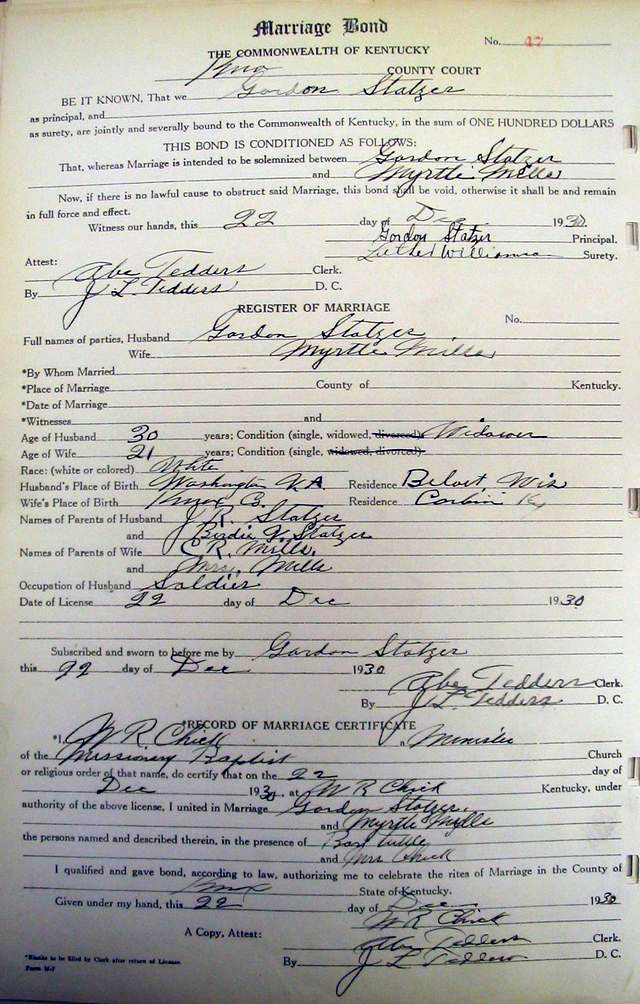 Marriage Bond
No. 47
THE COMMONWEALTH OF KENTUCKY
Knox COUNTY COURT
BE IT KNOWN, That we Gordon Statzer
as principal, and
as surety, are jointly and severally bound to the Commonwealth of Kentucky, in the sum of ONE HUNDRED DOLLARS
THIS BOND IS CONDITIONED AS FOLLOWS:
That, whereas Marriage is intended to be solemnized between Gordon Statzer
and Myrtle Mills
Now, if there is no lawful cause to obstruct said Marriage, this bond shall be void, otherwise it shall be and remain
in full force and effect.
Witness our hands, this 22 day of Dec 1930.
Gordon Statzer Principal.
Surety.
Attest:
Abe Tedders Clerk.
By J L Tedders D. C.
REGISTER OF MARRIAGE
No.
Full names of parties, Husband Gordon Statzer
Wife Myrtle Mills
*By Whom Married
*Place of Marriage County of Kentucky.
*Date of Marriage
*Witnesses and
Age of Husband 30 years; Condition (single, widowed, divorced) Widower
Age of Wife 21 years; Condition (single, widowed, divorced)
Race: (white or colored) White
Husband's Place of Birth Washington VA. Residence Beloit Wis
Wife's Place of Birth Knox Co. Residence Corbin Ky
Names of Parents of Husband J. R. Statzer
and Birdie V. Statzer
Names of Parents of Wife C R. Mills.
and Mrs. Mills
Occupation of Husband Soldier
Date of License 22 day of Dec 1930
Subscribed and sworn to before me by Gordon Statzer
this 22 day of Dec 1930
Abe Tedders Clerk.
By J L Tedders D. C.
RECORD OF MARRIAGE CERTIFICATE
*I, W R Chick a Minister
of the Missionary Baptist Church
or religious order of that name, do certify that on the 22 day of
Dec 1930, at W R Chick Kentucky, under
authority of the above license, I united in Marriage Gordon Statzer
and Myrtle Mills
the persons named and described therein, in the presence of Tuttle
and Mrs Chick
I qualified and gave bond, according to law, authorizing me to celebrate the rites of Marriage in the County of
Knox State of Kentucky.
Given under my hand, this 22 day of Dec 1930
W R Chick
A Copy, Attest: Abe Tedders Clerk.
By J L Tedders D. C.
*Blanks to be filed by Clerk after return of License.
Form M-7